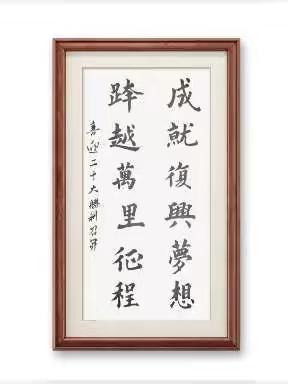 成就復興夢想
跨越萬里征程
喜迎二十大勝利召開